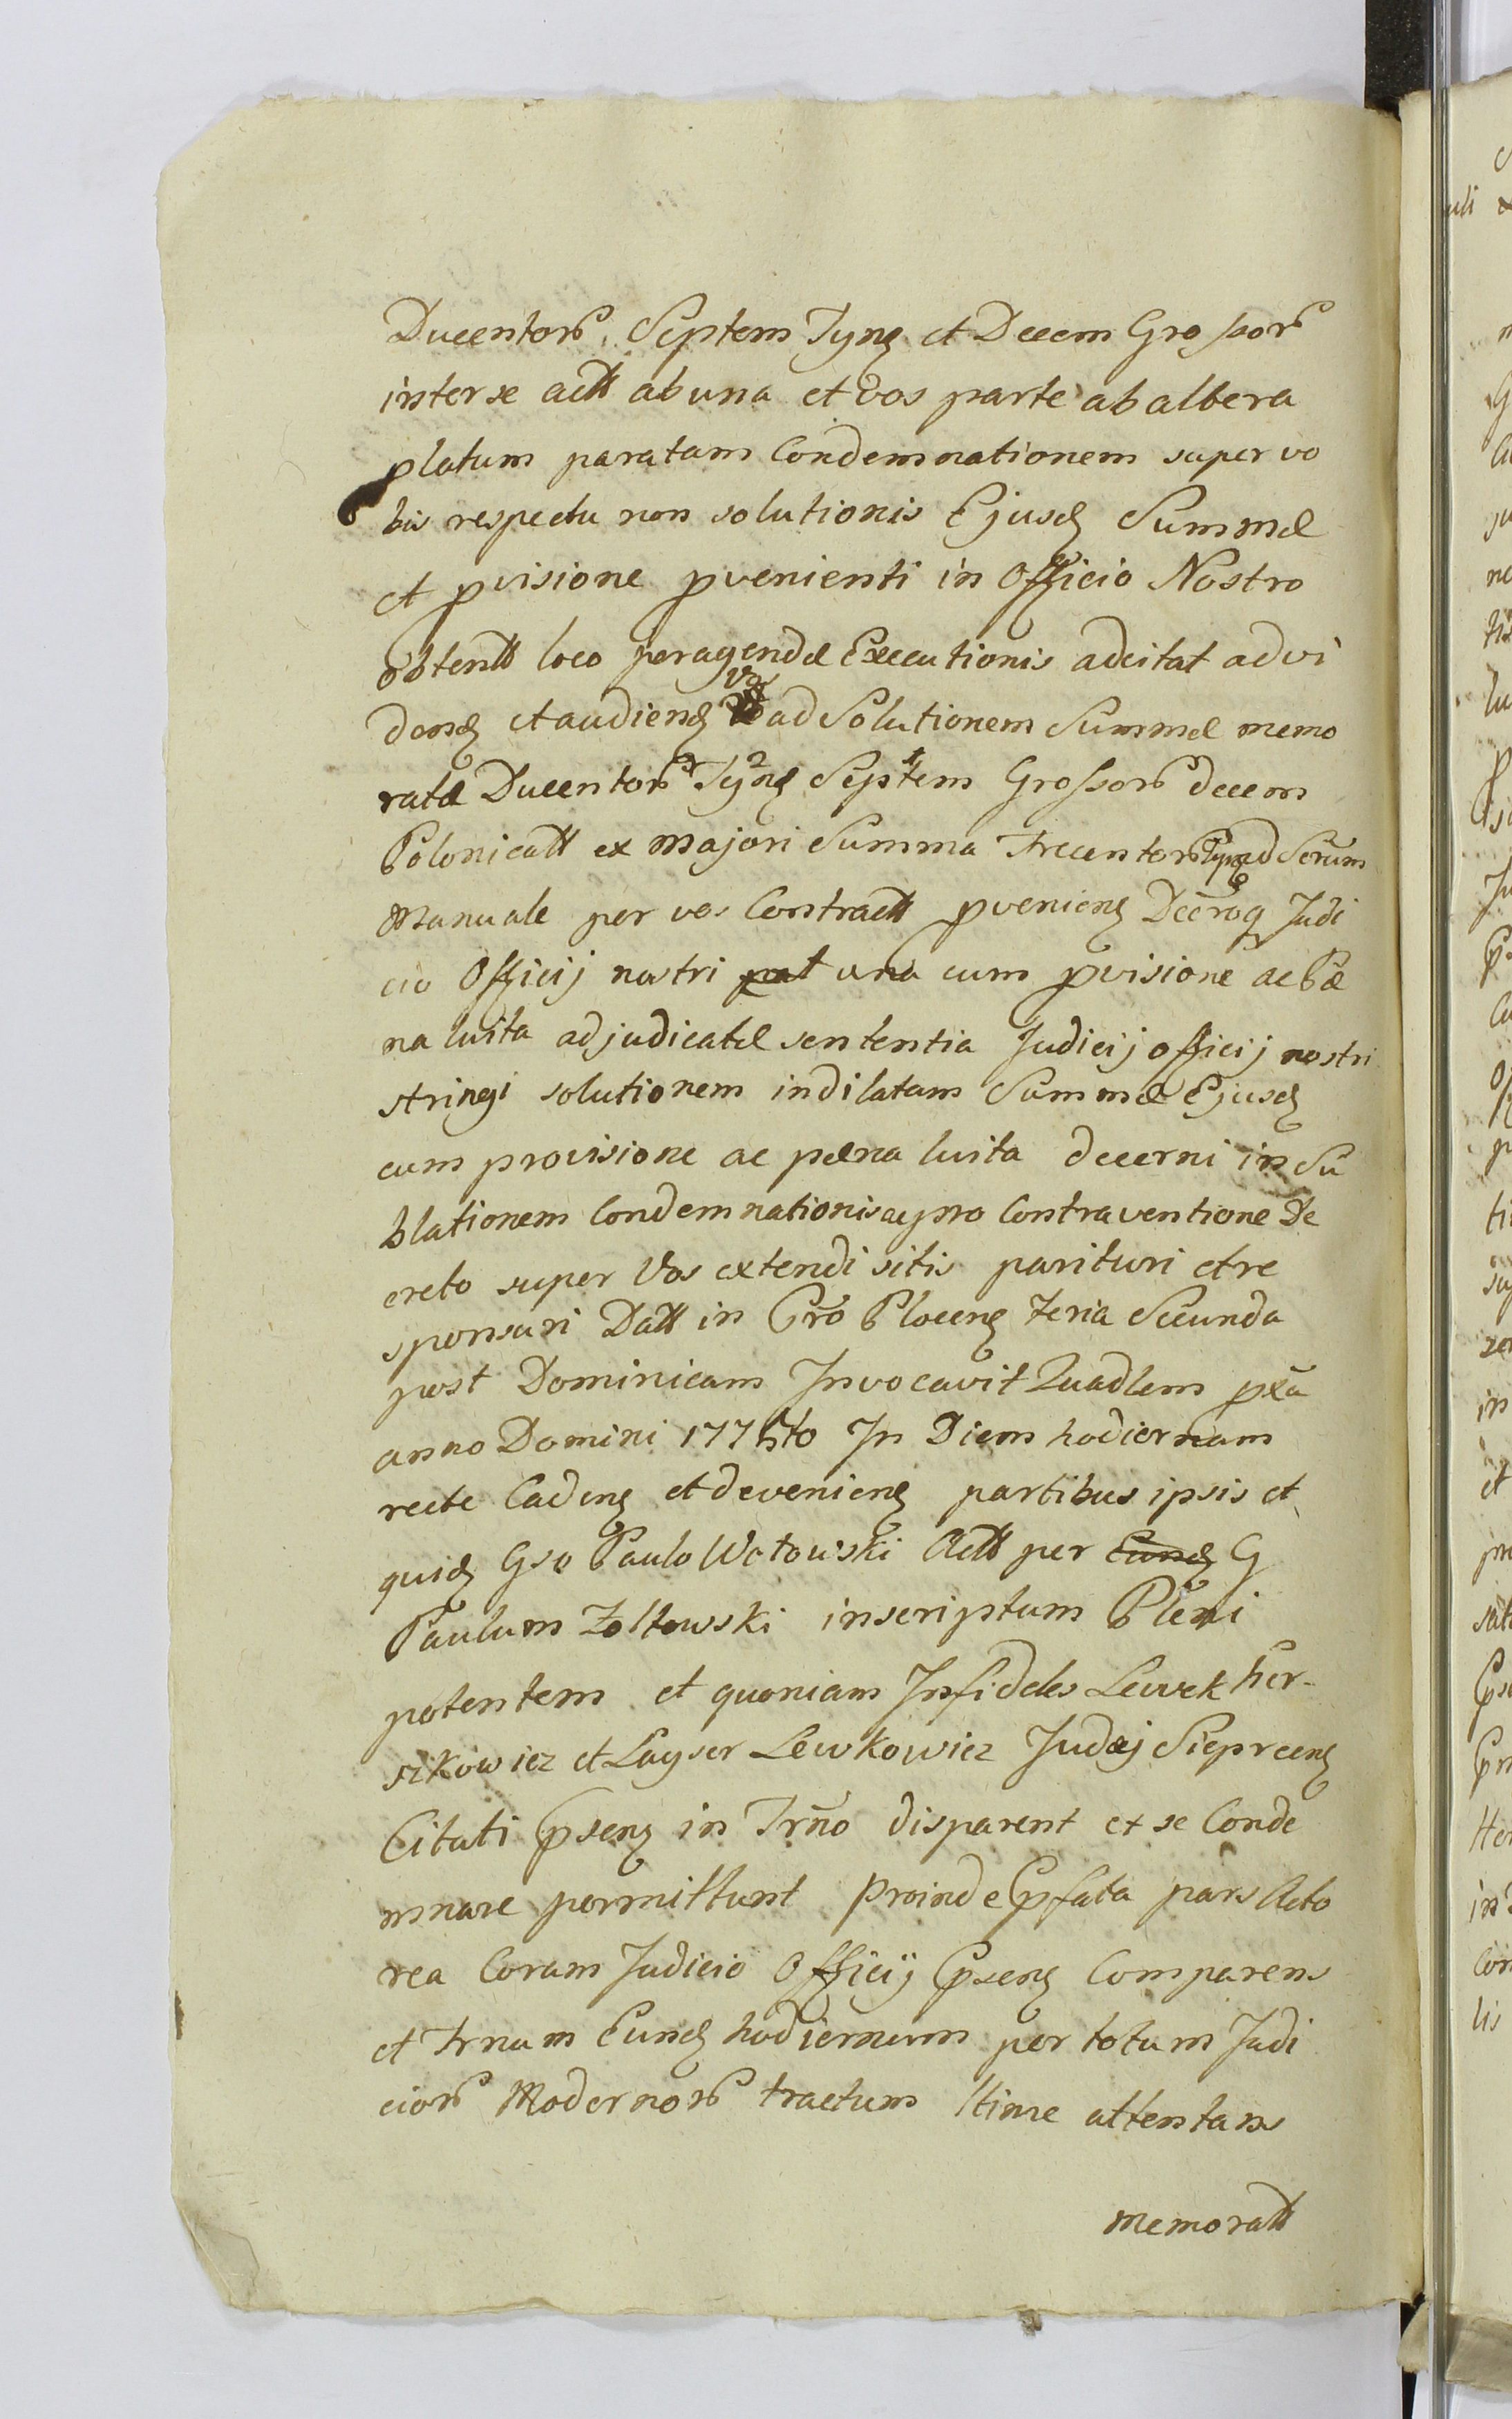 Ducentorū Septem Tynę et Decem Grossorū
inter se actt ab una et vos parte ab altera
platum paratam Condemnationem super vo
bis respectu non solutionis Ejusdę Summæ
et pvisione pvenienti in Officio Nostro
obtentt loco peragendæ Executionis adcitat ad vi
dendę et audiendę vos ad Solutionem Summæ memo
ratæ Ducentorū Tynę Septem Grossorū decem
Polonicatt ex Majori Summa Trecentorū Tynę ad Scrūm
Manuale per vos Contractt pvenienę Decroq Judi
cio Officij nostri una cum pvisione ac Pæ
na luita adjudicatæ sententia Judicij officij nostri
stringi solutionem indilatam Summæ Ejusdę
cum provisione ac pæna luita decerni in Su
blationem Condemnationis ac pro Contraventione De
creto super Vos extendi sitis parituri et re
sponsuri Datt in Cro Plocenę Feria Secunda
post Dominicam Invocavit Quadlem pxā
anno Domini 1775to In Diem hodiernam
recte Cadenę et devenienę partibus ipsis et
quidę Gso Paulo Wotowski Actt per Eundę G
Paulum Zoltowski inscriptum Pleni
potentem et quoniam Infideles Lewek her-
szkowicz et Layser Lewkowicz Judæj Sieprcenę
Citati Psenę in Trno disparent et se Conde
mnare permittunt proinde Pfata pars Acto
rea Coram Judicio Officij Psenę Comparens
et Trnum Eundę hodiernum per totum Judi
ciorū Modernorū tractum ltime attentans
memoratt